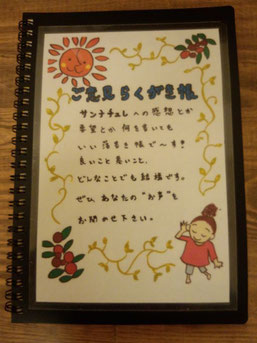 ご意見らくがき帳
サンナチュレへの感想とか
希望とか何を書いても
いい落書き帳で〜す!
良いこと悪いこと、
どんなことでも結構です。
ぜひ、あなたの"お声"を
お聞かせ下さい。